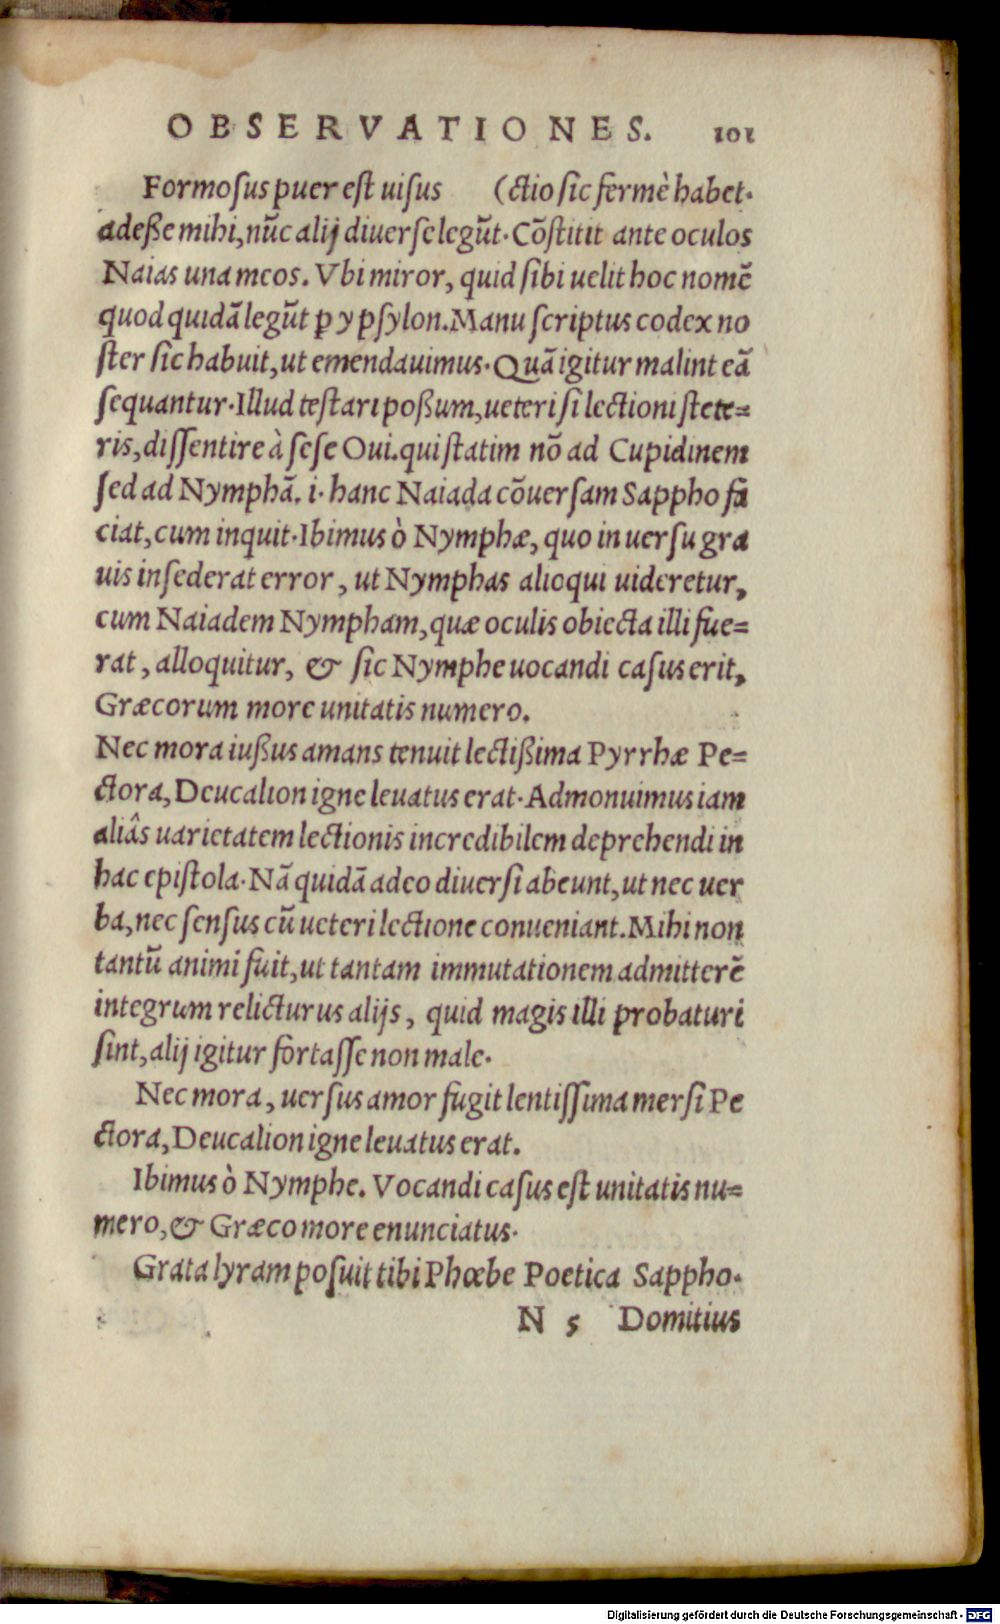 OBSERVATIONES. 101
Formosus puer est uisus (ctio sic fermè habet.
adeße mihi, nūc alij diuerse legūt. Cōstitit ante oculos
Naias una meos. Vbi miror, quid sibi uelit hoc nomē
quod quidā legūt p y psylon. Manu scriptus codex no
ster sic habuit, ut emendauimus. Quā igitur malint eā
sequantur. Illud testari poßum, ueteri si lectioni stete=
ris, dissentire à sese Oui. qui statim nō ad Cupidinem
sed ad Nymphā. i. hanc Naiada cōuersam Sappho fa
ciat, cum inquit. Ibimus ò Nymphæ, quo in uersu gra
uis insederat error, ut Nymphas alioqui uideretur,
cum Naiadem Nympham, quæ oculis obiecta illi fue=
rat, alloquitur, & sic Nymphe uocandi casus erit,
Græcorum more unitatis numero.
Nec mora iußus amans tenuit lectißima Pyrrhæ Pe=
ctora, Deucalion igne leuatus erat. Admonuimus iam
aliâs uarietatem lectionis incredibilem deprehendi in
hac epistola. Nā quidā adeo diuersi abeunt, ut nec uer
ba, nec sensus cū ueteri lectione conueniant. Mihi non
tantū animi fuit, ut tantam immutationem admitterē
integrum relicturus alijs, quid magis illi probaturi
sint, alij igitur fortasse non male.
Nec mora, uersus amor fugit lentissima mersi Pe
ctora, Deucalion igne leuatus erat.
Ibimus ò Nymphe. Vocandi casus est unitatis nu=
mero, & Græco more enunciatus.
Grata lyram posuit tibi Phœbe Poetica Sappho.
N 5 Domitius
Digitalisierung gefördert durch die Deutsche Forschungsgemeinschaft - DFG